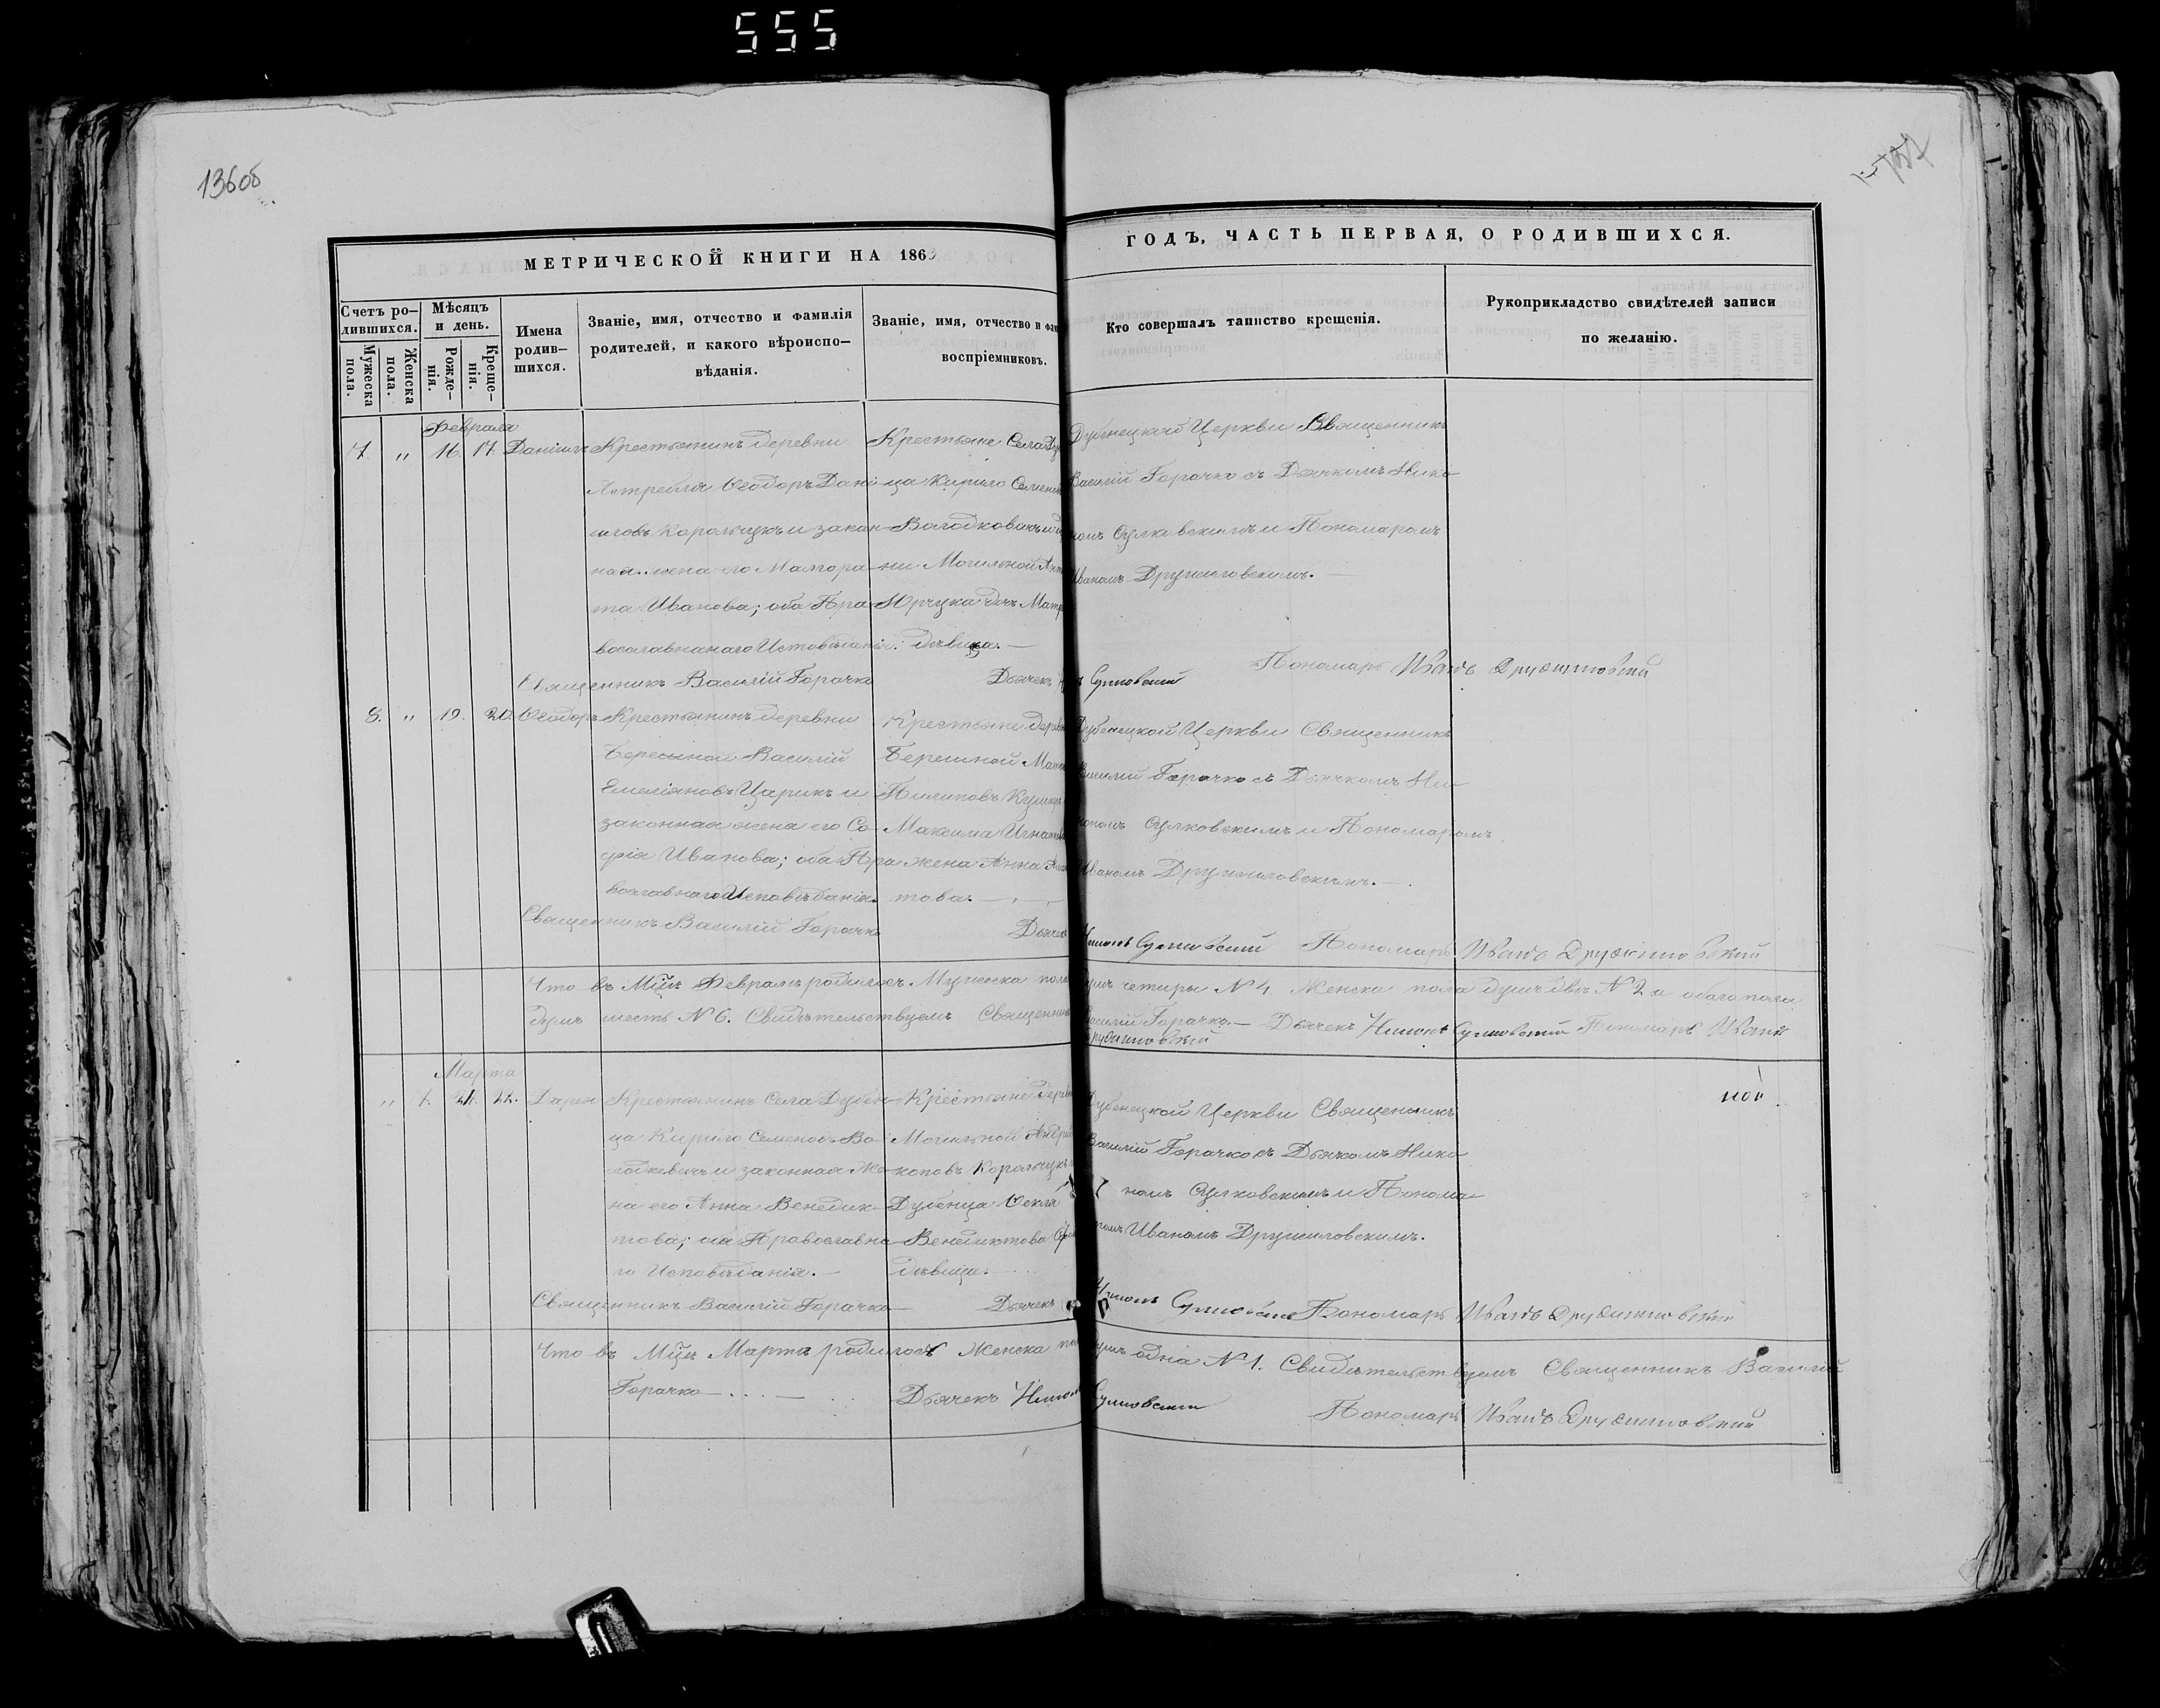 555
136об
МЕТРИЧЕСКОЙ КНИГИ НА 186
ГОДЪ, ЧАСТЬ ПЕРВАЯ, О РОДИВШИХСЯ.
Счетъ ро-
дившихся.
Мужеска
пола.
Женска
пола.
Мѣсяцъ
и день.
Рожде-
нія.
Креще-
нія.
Имена
родив-
шихся.
Званіе, имя, отчество и фамилія
родителей, и какого вѣроиспо-
вѣданія.
Званіе, имя, отчество и фам
воспріемниковъ.
Кто совершалъ таинство крещенія.
Рукоприкладство свидѣтелей записи
по желанію.
Февраля
7. " 16. 17. Даніилъ
Крестьянинъ деревни
Ѳеодоръ Дані-
иловъ Корольчукъ и закон-
ная жена его Мавра
Иванова; оба Пра-
вославнаго Исповѣданія.
Крестьяне Села Ду
ца Кирило Семенов
Володковичъ и д
ни Могильной Ант
Юрчука дочь Матр
дѣвица.
Дубенецкой Церкви Священникъ
Василій Горачко съ Дьячкомъ Нико
номъ Сулковскимъ и Пономаромъ
Иваномъ Дружиловскимъ.
Священникъ Василій Горачко Дьячекъ Сулковский Пономарь Иванъ Дружиловский
8. " 19. 20. Ѳеодоръ
Крестьянинъ деревни
Василій
Емеліановъ Царикъ и
законная жена его Со-
фія Иванова; оба Пра
вославнаго Исповѣданія.
Крестьяне дерев
Пилиповъ
Максима Игнат
жена Анна
това.
Дубенецкой Церкви Священникъ
Василій Горачко съ Дьячкомъ Ни-
кономъ Сулковскимъ и Пономаромъ
Иваномъ Дружиловскимъ.
Священникъ Василій Горачко Дьячекъ Никонъ Сулковский Пономарь Иванъ Дружиловский
Что въ Мцѣ Февралѣ родилось Мужеска пола душъ четыри N 4. Женска пола душъ двѣ N 2 а обаго пола
душъ шесть N 6. Свидѣтельствуемъ Священникъ Василій Горачко. Дьячекъ Никонъ Сулковский Пономарь Иванъ
Дружиловский
Марта
" 1. 21. 22. Дарея
Крестьянинъ Села Дубен-
ца Кирило Семеновъ Во-
лодкевичъ и законная Же-
на его Анна Венедик-
това; оба Православна-
го Исповѣданія.
Крестьяне дерев
Могильной Андр
коповъ Корольчукъ
Дубенца Ѳекла
Венедиктова
дѣвица.
Дубенецкой Церкви Священникъ
Василій Горачко съ Дьячкомъ Нико
номъ Сулковскимъ и Понома
ромъ Иваномъ Дружиловскимъ.
Священникъ Василій Горачко Дьячекъ Никонъ Сулковский Пономарь Иванъ Дружиловский
Что въ Мцѣ Мартѣ родилось Женска пола душъ одна N 1. Свидѣтельствуемъ Священникъ Василій
Горачко Дьячекъ Никонъ Сулковский Пономарь Иванъ Дружиловский